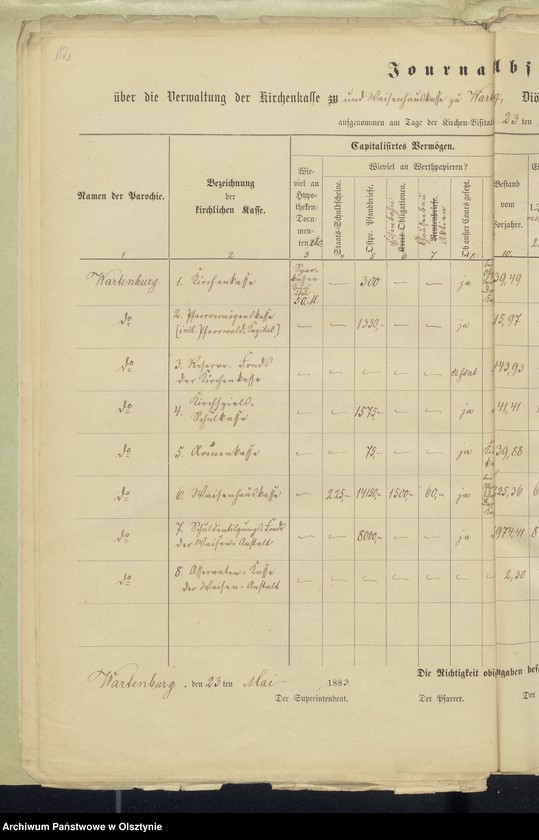 Journalabs
über die Verwaltung der Kirchenkasse zu und Waisenhauskasse zu Wartbg, Diö
aufgenommen am Tage der Kirchen-Visitat 23 ten
Namen der Parochie.
Bezeichnung
der
kirchlichen Kasse.
Capitalisirtes Vermögen.
Wie-
viel an
Hypo-
theken-
Docu-
menten etc
Wieviel an Werthpapieren?
Staats-Schuldscheine.
Ostpr. Pfandbriefe.
Eisenbahn
Kreis-Obligationen.
Rentenbriefe.
Aktien
Ob außer Cours gesetzt.
Bestand
vom
Vorjahre.
1 2 3 4 5 6 7 8 10.
Wartenburg 1. Kirchenkasse 50. M. — 300 — — ja 39,49
do 2. Pfarrvermögenskasse — — 1350,- — — ja 15,97
[inkl. Pfarrwald. Kapital]
do 3. Reserve-Fonds — — — — — 143,93
der Kirchenkasse
do 4. Kirchspiels- — — 1575,- — — ja 41,41
Schulkasse.
do 5. Armenkasse — — 75,- — — ja 39,88
do 6. Waisenhauskasse — 225,- 14150,- 1500,- 60,- ja 225,36
do 7. Schuldentilgungs-Fonds — — 8000,- — — ja 974,41
der Waisen-Anstalt
do 8. Asservaten-Kasse — — — — — — 2,30
der Waisen-Anstalt
Wartenburg, den 23 ten Mai 1883.
Die Richtigkeit obi gaben bes
Der Superintendent. Der Pfarrer. Der
Archiwum Państwowe w Olsztynie